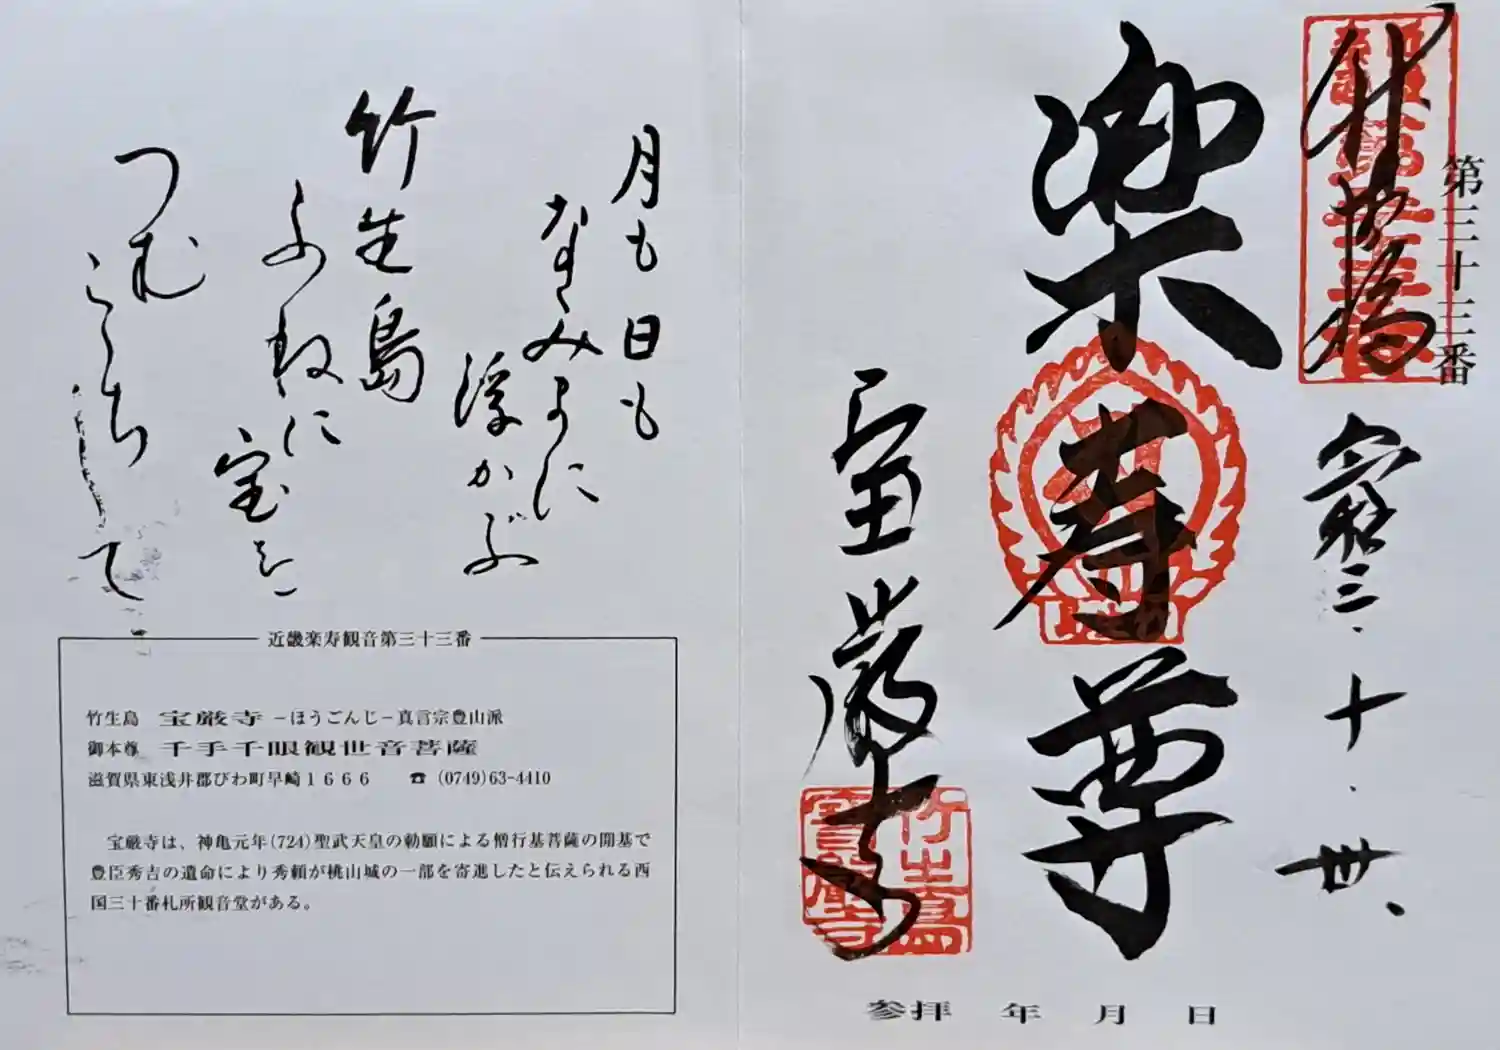 第三十三番
竹生島
令和三.十.卅、
楽寿尊
宝厳寺
竹生島
参拝 年 月 日
月も日も
なみまに
浮かぶ
竹生島
ふねに
宝を
つむ
こゝちして
近畿楽寿観音第三十三番
竹生島 宝厳寺 −ほうごんじ−真言宗豊山派
御本尊 千手千眼観世音菩薩
滋賀県東浅井郡びわ町早崎1666 ☎ (0749)63-4410
宝厳寺は、神亀元年(724)聖武天皇の勅願による僧行基菩薩の開基で
豊臣秀吉の遺命により秀頼が桃山城の一部を寄進したと伝えられる西
国三十番札所観音堂がある。